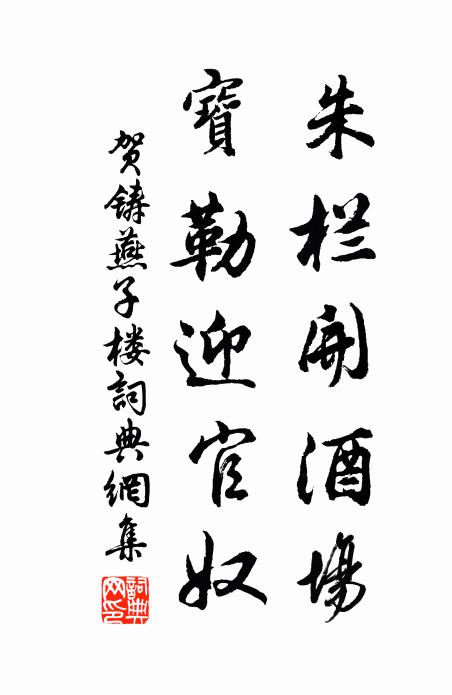 朱栏開酒場
寶勒迎官奴
贺鋳燕子楼詞典網集
詞典網印